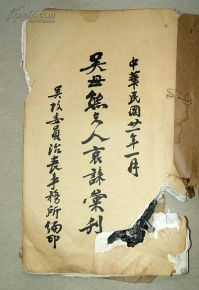 中華民國廿一年一月
吳母熊夫人哀誄彙刊
吳故委員治喪事務所編印